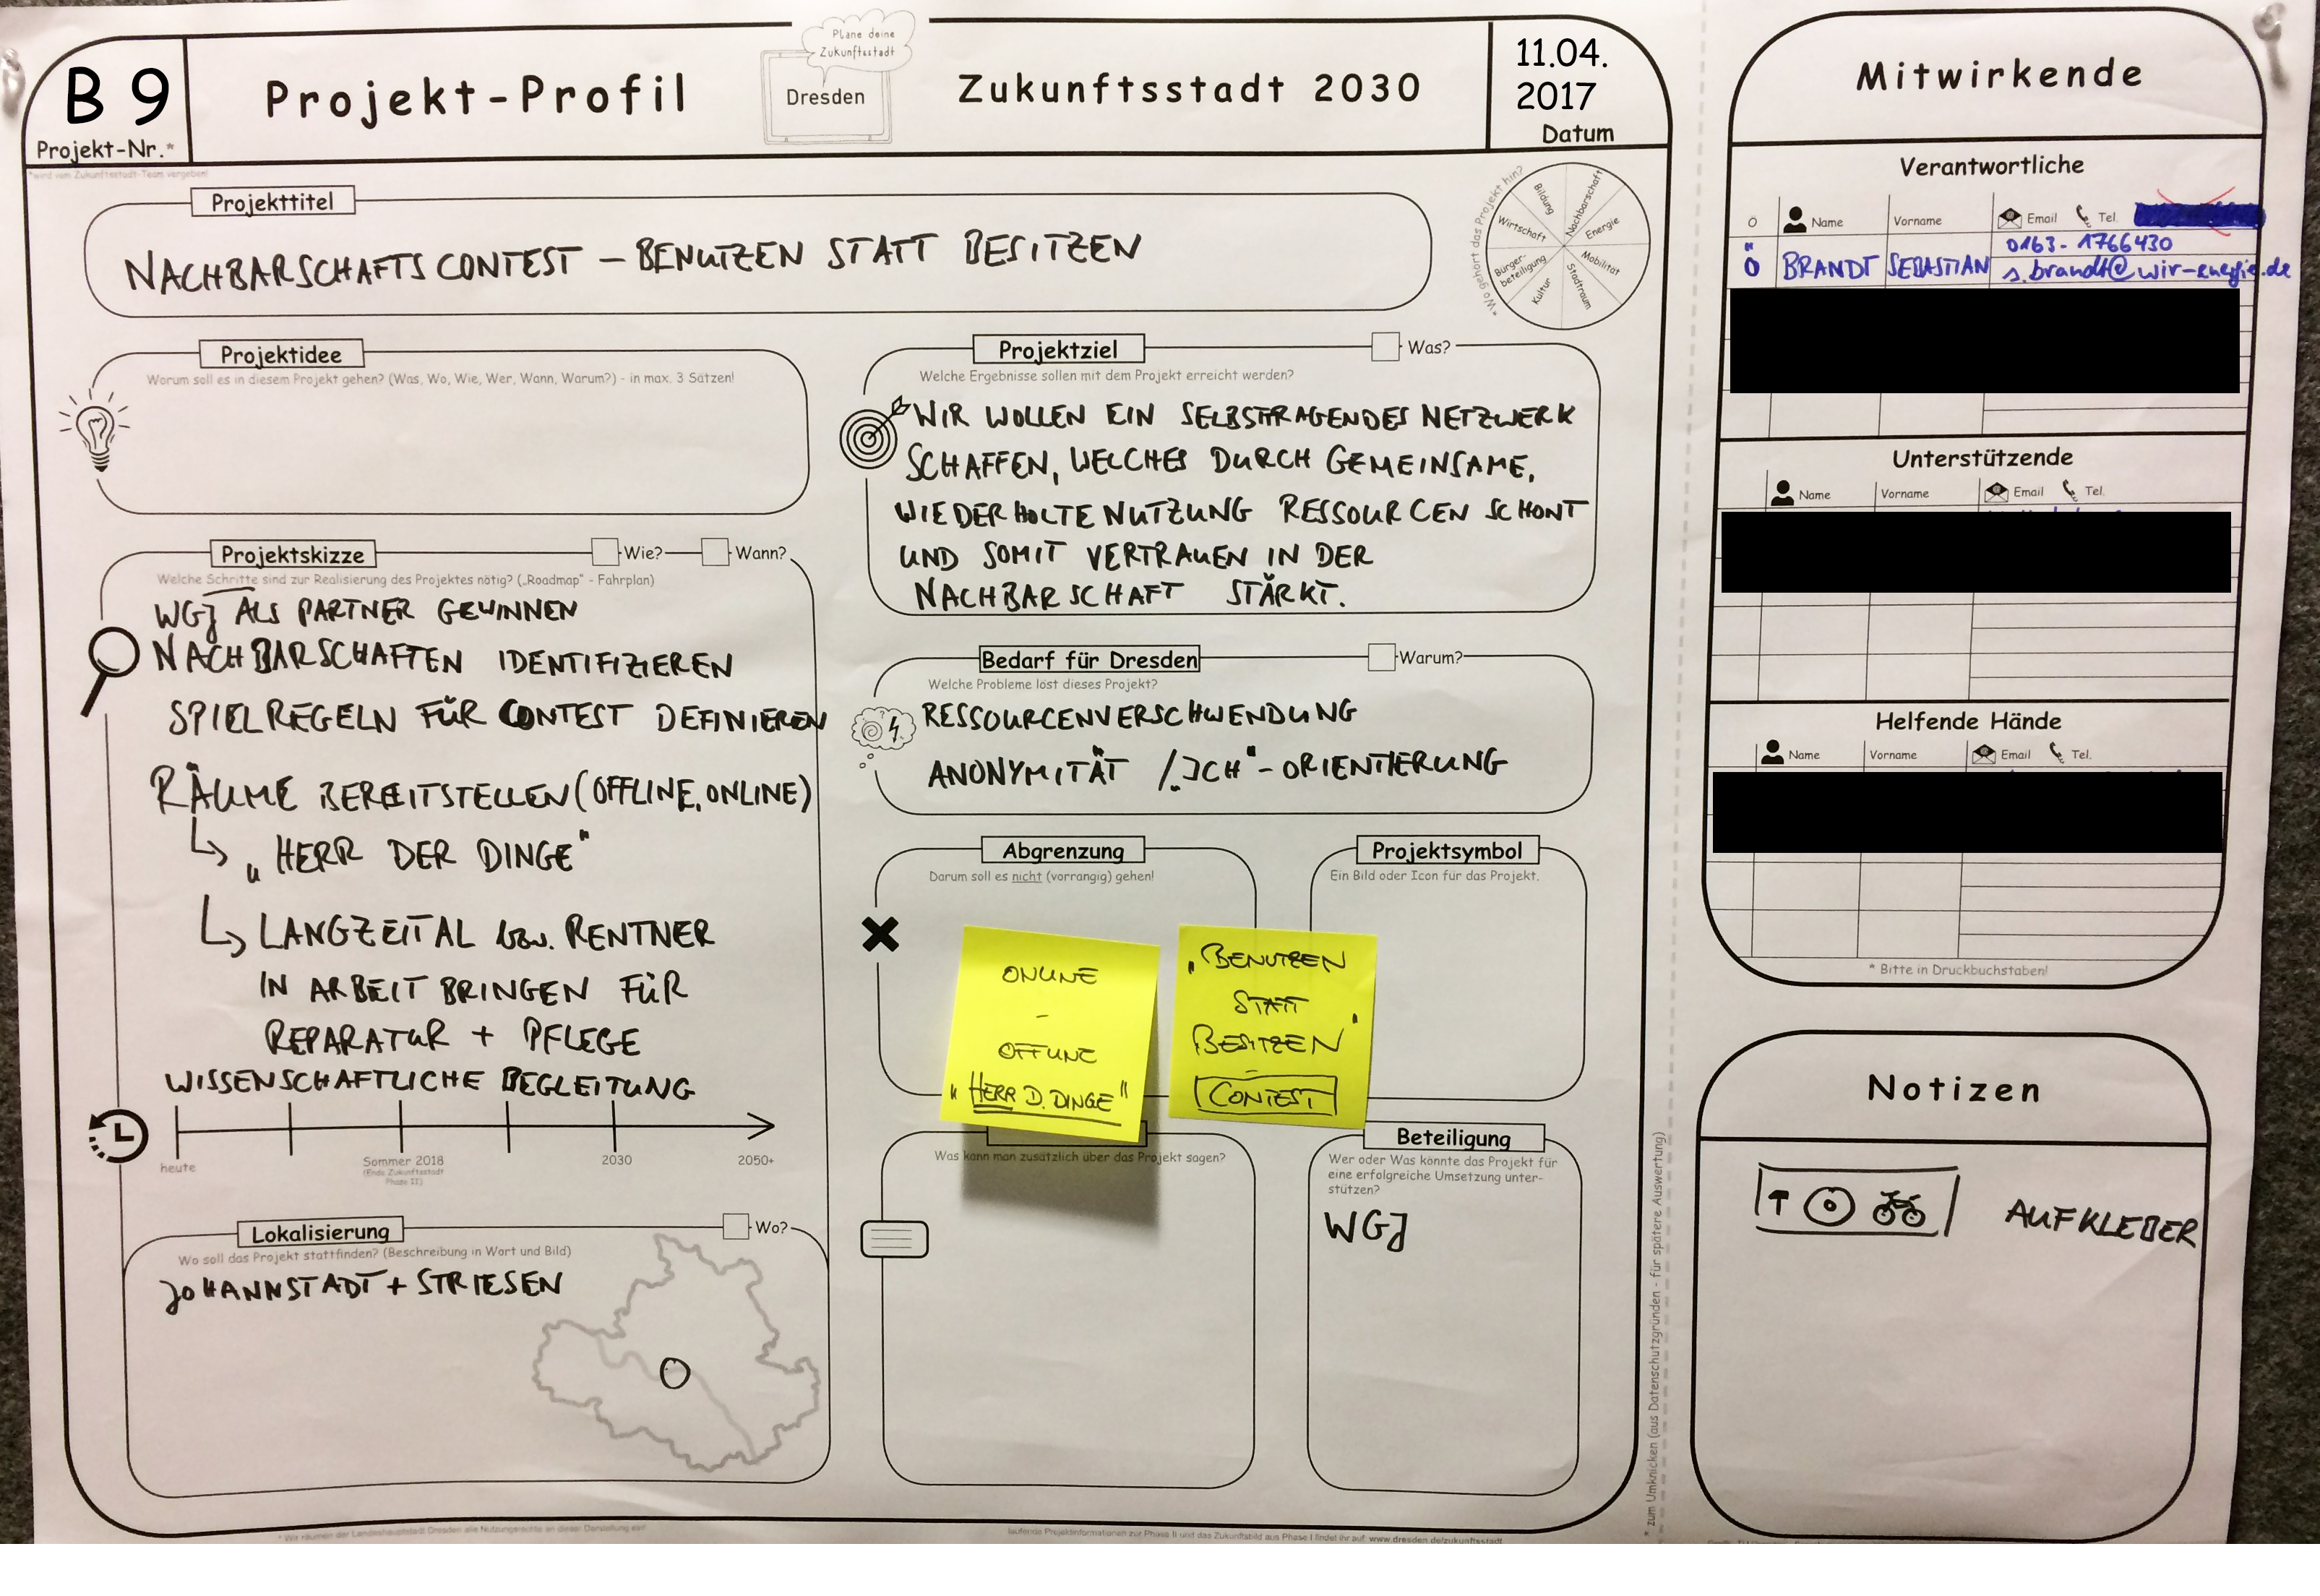 B 9
Projekt-Nr.*
*wird vom Zukunftsstadt-Team vergeben!
Projekt-Profil
Plane deine
Zukunftsstadt
Dresden
Zukunftsstadt 2030
11.04.
2017
Datum
Projekttitel
NACHBARSCHAFTSCONTEST – BENUTZEN STATT BESITZEN
*Wo gehört das Projekt hin?
Bildung
Nachbarschaft
Energie
Mobilität
Stadtraum
Kultur
Bürger-
beteiligung
Wirtschaft
Projektidee
Worum soll es in diesem Projekt gehen? (Was, Wo, Wie, Wer, Wann, Warum?) - in max. 3 Sätzen!
Projektskizze
Wie?
Wann?
Welche Schritte sind zur Realisierung des Projektes nötig? („Roadmap“ - Fahrplan)
WGJ ALS PARTNER GEWINNEN
NACHBARSCHAFTEN IDENTIFIZIEREN
SPIELREGELN FÜR CONTEST DEFINIEREN
RÄUME BEREITSTELLEN (OFFLINE, ONLINE)
↳ „HERR DER DINGE“
↳ LANGZEITAL bzw. RENTNER
IN ARBEIT BRINGEN FÜR
REPARATUR + PFLEGE
WISSENSCHAFTLICHE BEGLEITUNG
heute
Sommer 2018
(Ende Zukunftsstadt
Phase II)
2030
2050+
Lokalisierung
Wo?
Wo soll das Projekt stattfinden? (Beschreibung in Wort und Bild)
JOHANNSTADT + STRIESEN
Projektziel
Was?
Welche Ergebnisse sollen mit dem Projekt erreicht werden?
WIR WOLLEN EIN SELBSTTRAGENDES NETZWERK
SCHAFFEN, WELCHES DURCH GEMEINSAME,
WIEDERHOLTE NUTZUNG RESSOURCEN SCHONT
UND SOMIT VERTRAUEN IN DER
NACHBARSCHAFT STÄRKT.
Bedarf für Dresden
Warum?
Welche Probleme löst dieses Projekt?
RESSOURCENVERSCHWENDUNG
ANONYMITÄT / „ICH“-ORIENTIERUNG
Abgrenzung
Darum soll es nicht (vorrangig) gehen!
ONLINE
-
OFFLINE
"HERR D. DINGE"
Projektsymbol
Ein Bild oder Icon für das Projekt.
„BENUTZEN
STATT
BESITZEN“
-
CONTEST
Was kann man zusätzlich über das Projekt sagen?
Beteiligung
Wer oder Was könnte das Projekt für
eine erfolgreiche Umsetzung unter-
stützen?
WGJ
* Wir räumen der Landeshauptstadt Dresden alle Nutzungsrechte an dieser Darstellung ein!
laufende Projektinformationen zur Phase II und das Zukunftsbild aus Phase I findet ihr auf: www.dresden.de/zukunftsstadt
* zum Umknicken (aus Datenschutzgründen - für spätere Auswertung)
Mitwirkende
Verantwortliche
Ö Name Vorname Email Tel.
0163-1766430
Ö BRANDT SEBASTIAN s.brandt@wir-energie.de
Unterstützende
Name Vorname Email Tel.
Helfende Hände
Name Vorname Email Tel.
* Bitte in Druckbuchstaben!
Notizen
AUFKLEBER